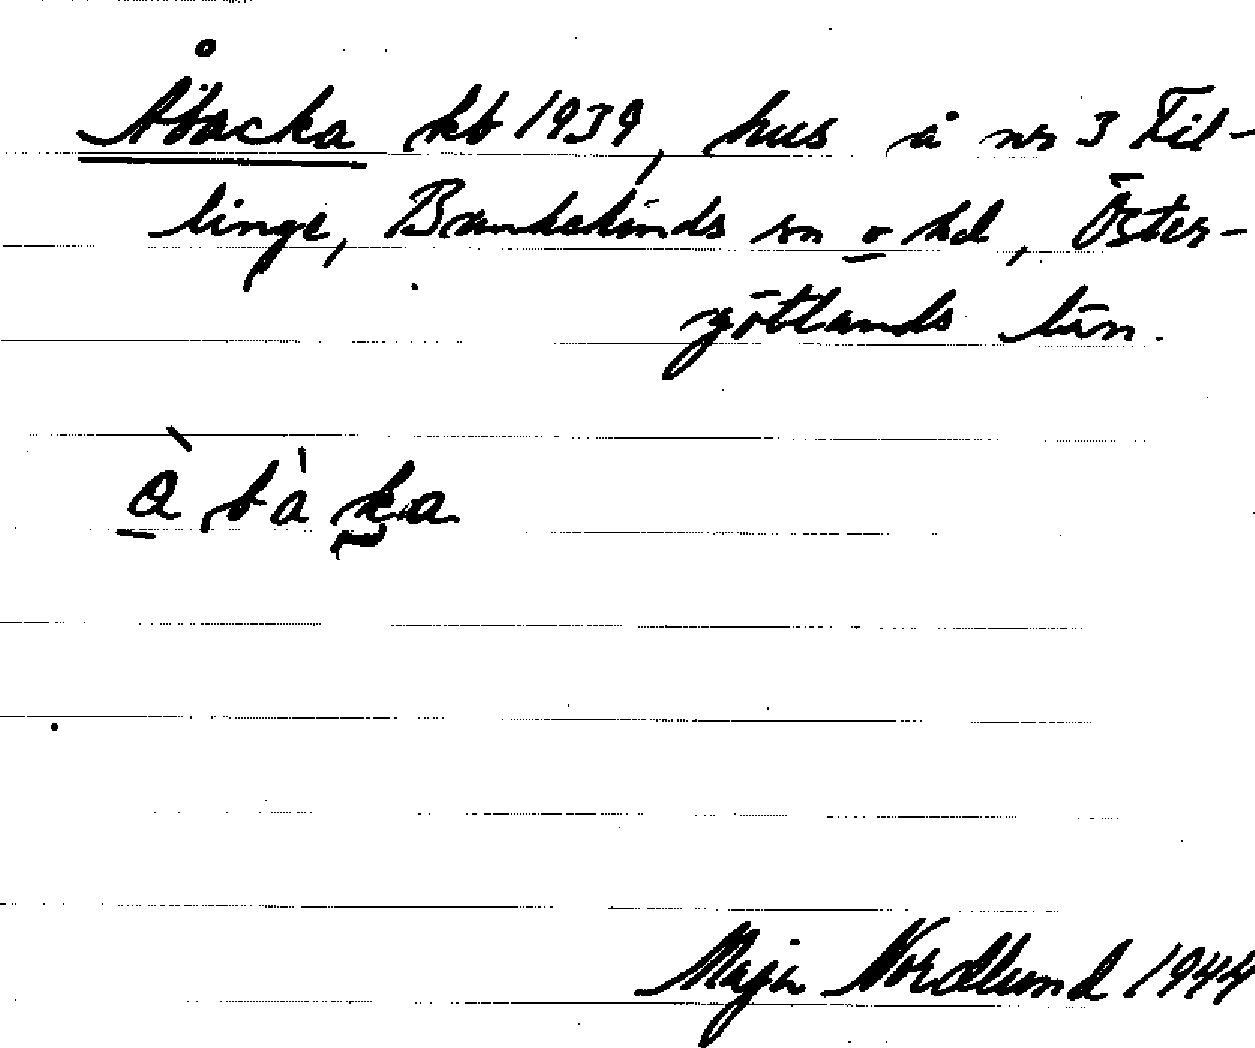 Åbacka kb 1939, hus å nr 3 Fil-
linge, Bankekinds sn o hd, Öster-
götlands län.
Maja Nordlund 1944